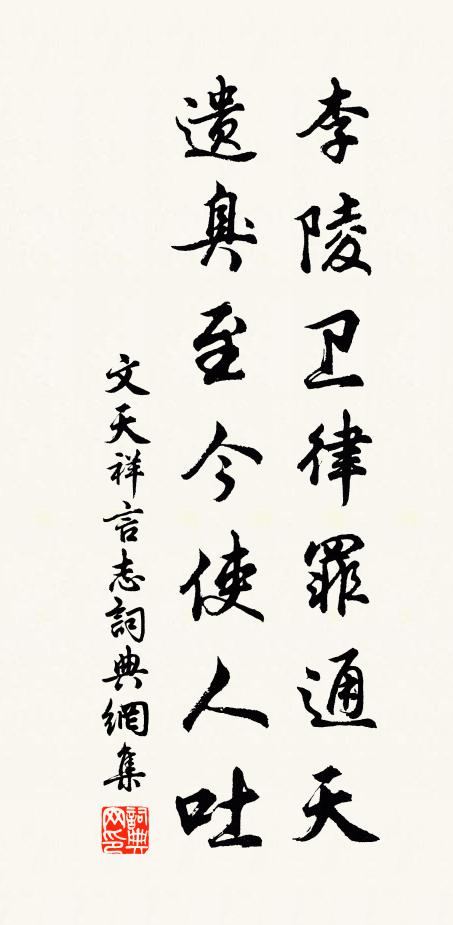 李陵卫律罪通天
遗臭至今使人吐
文天祥言志詞典網集
詞典网印